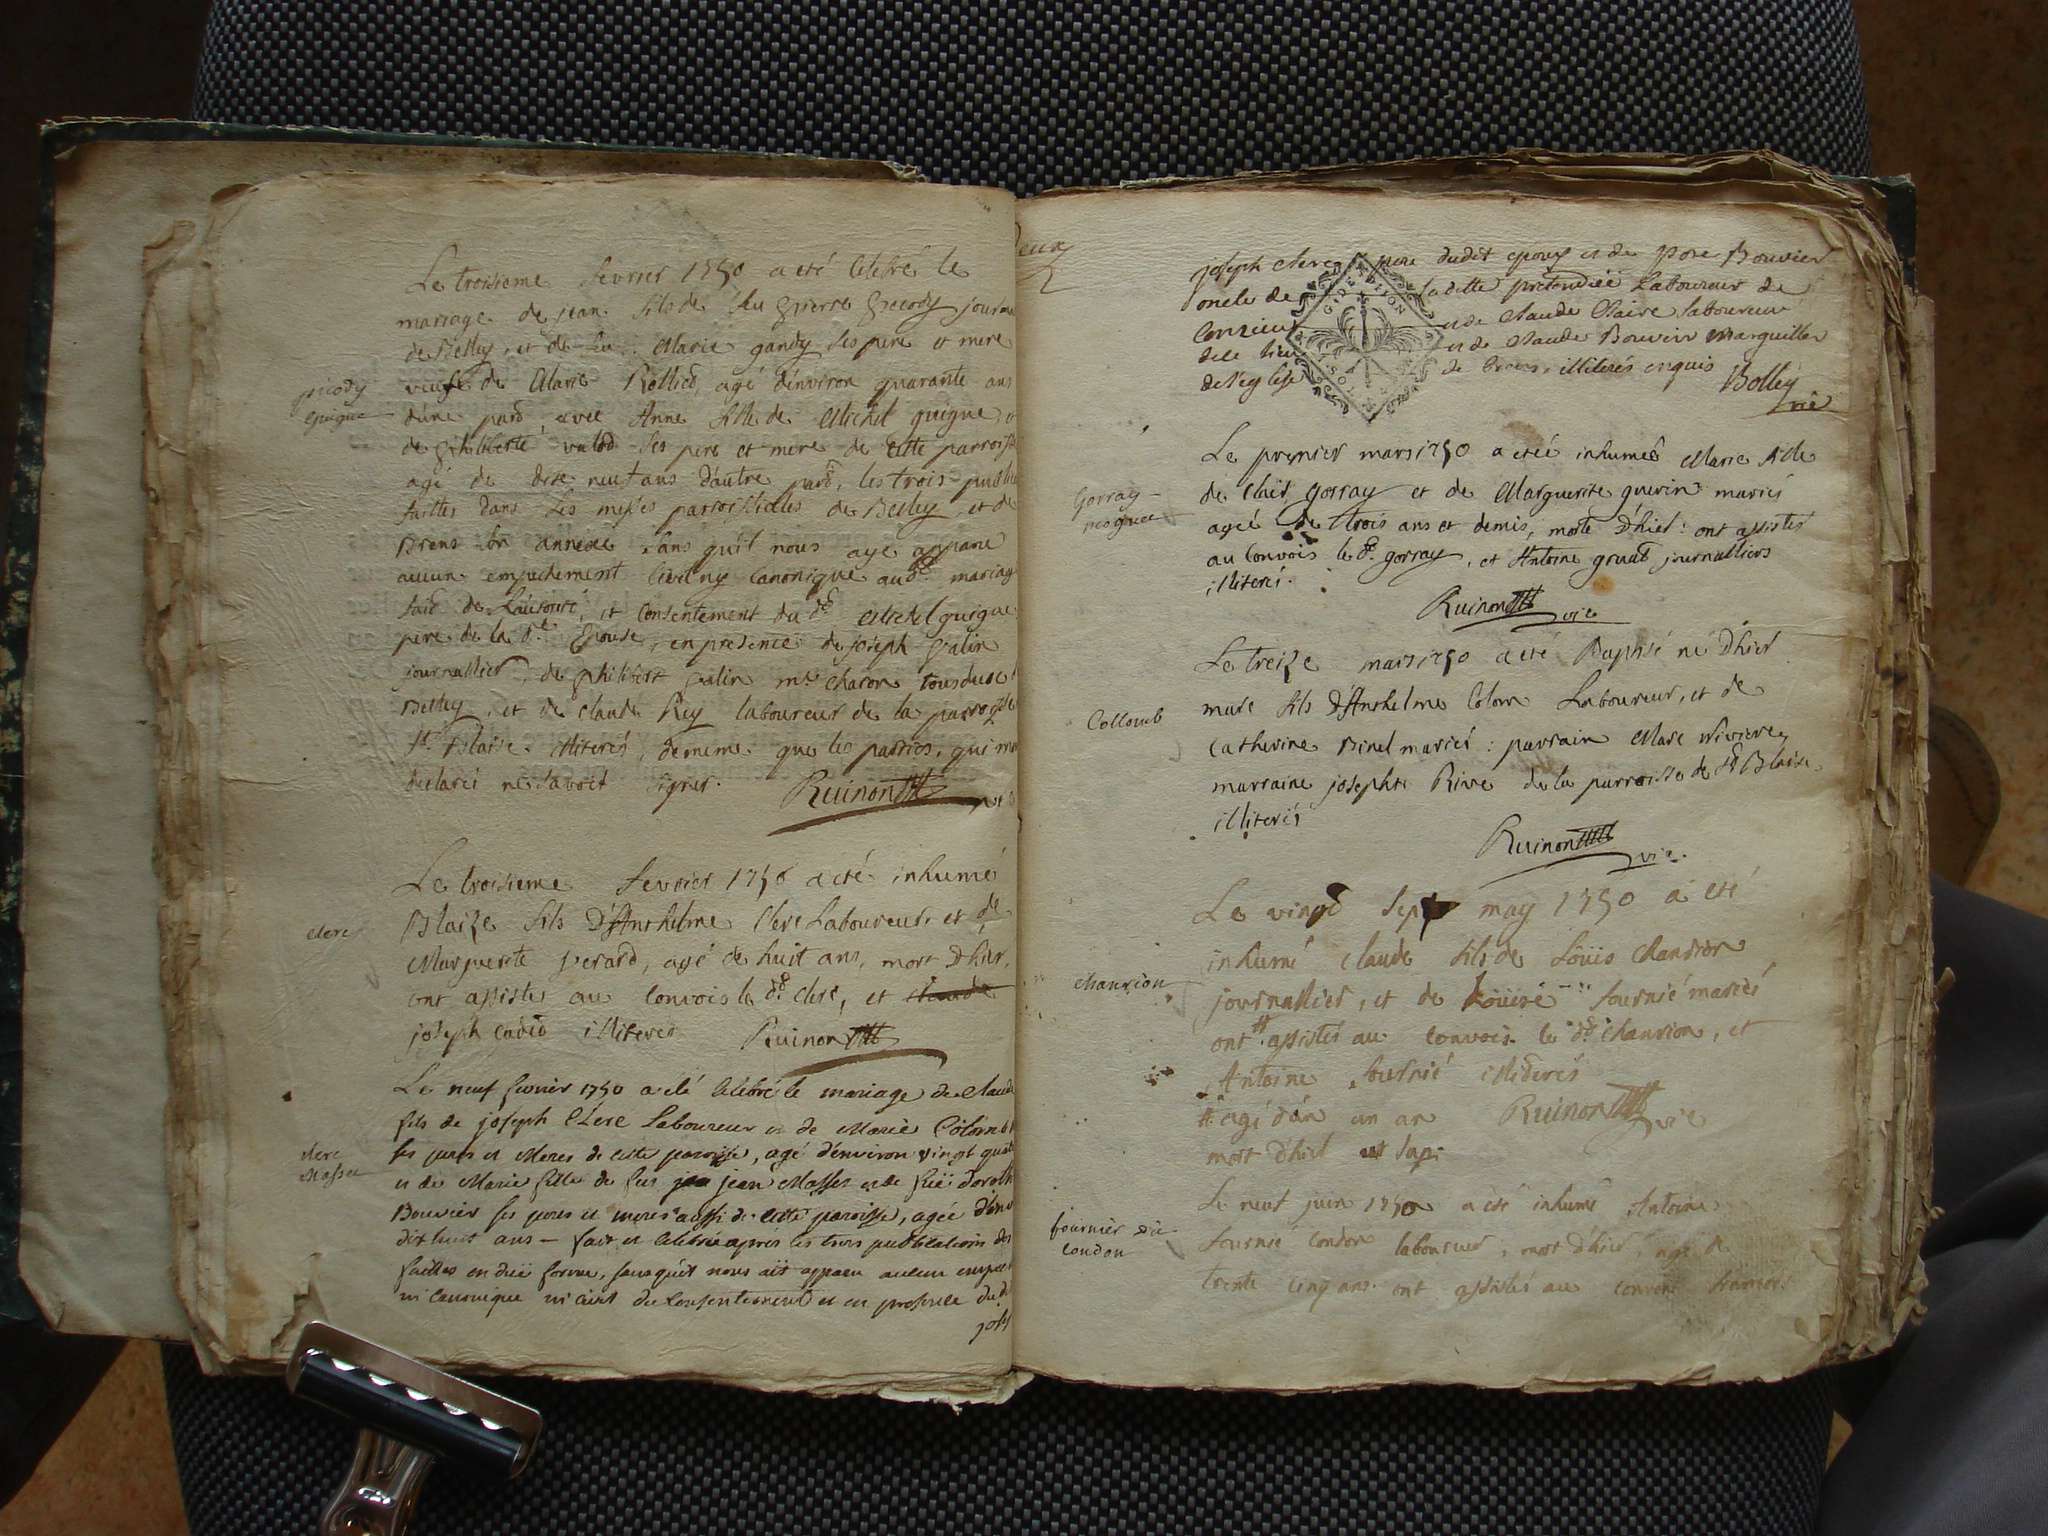 Le troisieme fevrier 1750 a eté celebré le
mariage de jean fils de feu pierre picody journa
de Belley, et de Marie gandy ses pere et mere
veuf de Marie Rollied, agé d'environ quarante ans
d'une pard avec Anne fille de Michel guigue,
de philiberte ses pere et mere de cette parroisse
agé de dixe neuf ans d'autre pard, les trois
faittes dans les messes parroissialles de Belley, et de
Brens son annexe sans qu'il nous aye apparu
aucun empechement civil ny canonique aud. mariage
faid de l'autorité, et consentement du d. Michel guigue
pere de la d.e Epouse, en presence de joseph galin
journallier, de philibert galin m.e charon tous du d
Belley, et de claude Rey laboureur de la parroisse
St Blaise. illiterés, de meme que les parties, qui m
declaré ne savoir signer.
Ruinon vic
picody
guigue
Le troisieme fevrier 1750 a eté inhumé
Blaize fils d'Anthelme Clerc Laboureur, et de
Marguerite perard, agé de huit ans, mort d'hier,
ont assistes au convois le d. clerc, et claude
joseph cadio illiteres Ruinon
clerc
Le neuf fevrier 1750 a été célébré le mariage de claude
fils de joseph Clerc Laboureur et de Marie Colomb
ses peres et Meres de cette paroisse, agé d'environ vingt quat
et de Marie fille de feu jean Masses et de feüe Doroth
Bouvier ses peres et meres aussi de cette paroisse, agée d'env
dix huit ans - fait et célébré après les trois publications des
faittes en düe forme, sans qu'il nous ait apparu aucun empec
ni canonique ni civil du consentement et en presence du d
jose
clerc
Masses
deux
joseph clerc pere dudit epoux et de Bouvier
oncle de ladite Laboureur de
Conzieu et de claude Claire laboureur
de ce lieu et de claude Bouvier Marguiller
de l'eglise de Brens, illiterés enquis
Bolley
vic
G. DE DIJON
Le premier mars 1750 a eteé inhumeé Marie fille
de Clair gorray et de Marguerite guerin mariés
ageé de trois ans et demis, morte d'hier: ont assistes
au convois le d. gorray, et Antoine journalliers
illiterés.
Ruinon vic
Gorray
Le treize mars 1750 a eté Baptisé né d'hier
marc fils d'Anthelme Colom Laboureur, et de
catherine Binel mariés: parrain Marc
marraine josephte Rive de la parroisse de St Blaise.
illiterés
Ruinon vic.
Collomb
Le vingd sept may 1750 a eté
inhumé claude fils de Loüis chanrion
journallier, et de fournié mariés
ont # assistes au convois le d. chanrion, et
Antoine fournié illiderés
# agé d'un an Ruinon vic
mort d'hier ut sup.
chanrion
Le neuf juin 1750 a eté inhumé Antoine
fournié condon laboureur, mort d'hier, agé d
trente cinq ans. ont assistés au convois
fournier dit
condon